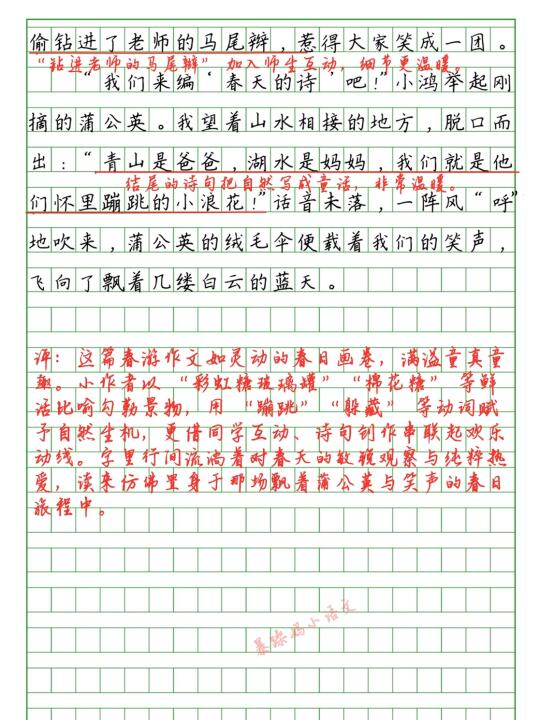 偷钻进了老师的马尾辫，惹得大家笑成一团。
“钻进老师的马尾辫”加入师生互动，细节更温暖。
“我们来编‘春天的诗’吧！”小鸿举起刚
摘的蒲公英。我望着山水相接的地方，脱口而
出：“青山是爸爸，湖水是妈妈，我们就是他
结尾的诗句把自然写成童话，非常温暖。
们怀里蹦跳的小浪花！”话音未落，一阵风“呼”
地吹来，蒲公英的绒毛伞便载着我们的笑声，
飞向了飘着几缕白云的蓝天。
评：这篇春游作文如灵动的春日画卷，满溢童真童
趣。小作者以“彩虹糖玻璃罐”“棉花糖”等鲜
活比喻勾勒景物，用“蹦跳”“躲藏”等动词赋
予自然生机，更借同学互动、诗句创作串联起欢乐
动线。字里行间流淌着对春天的敏锐观察与纯粹热
爱，读来仿佛置身于那场飘着蒲公英与笑声的春日
旅程中。
暴躁妈小语文